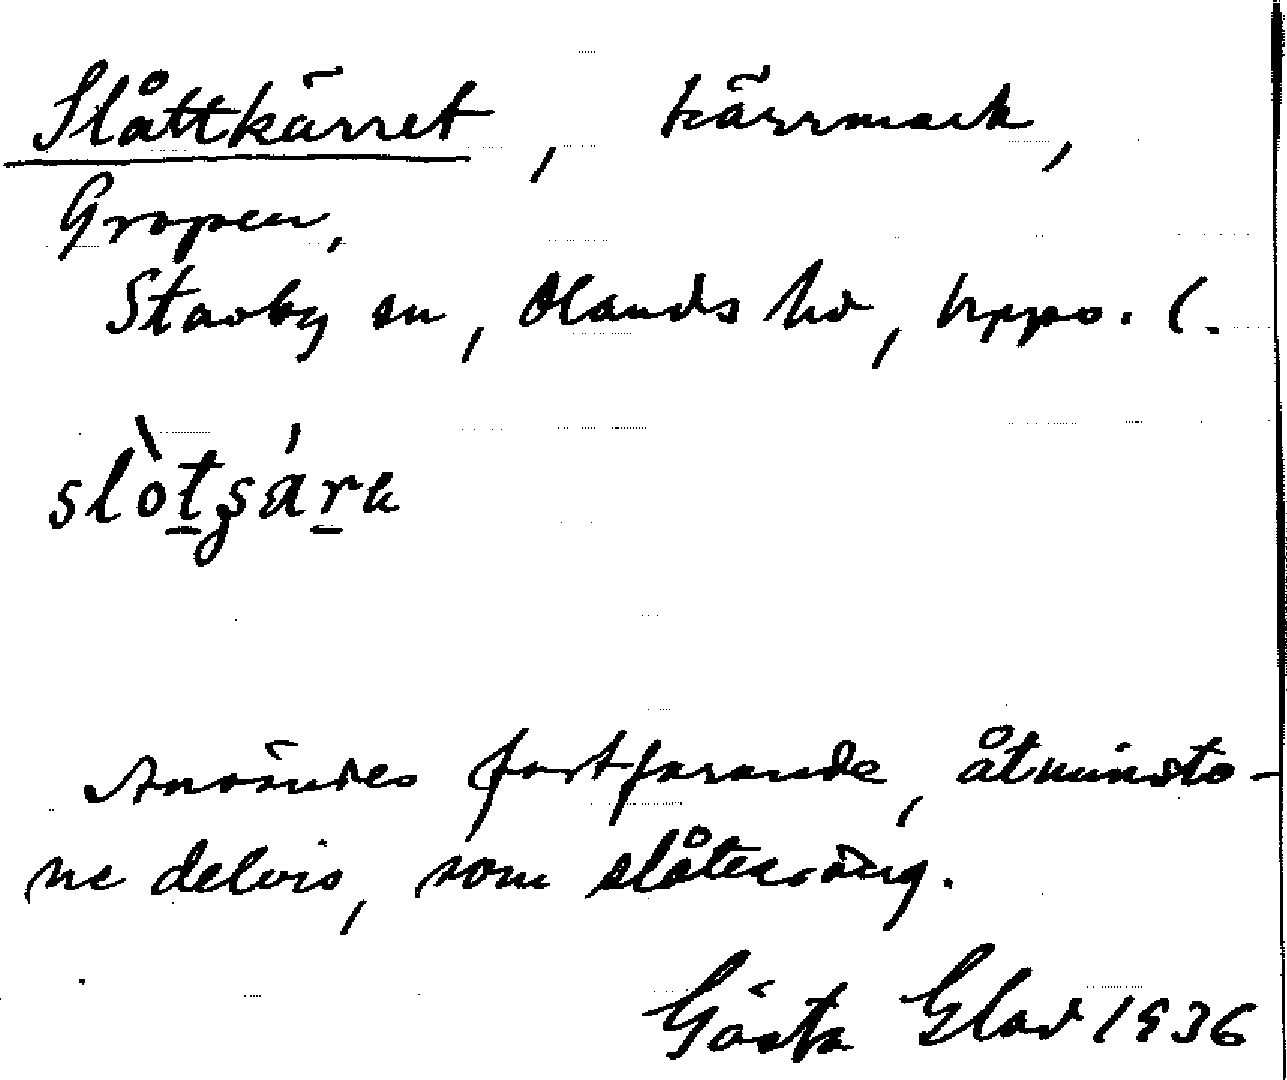 Slåttkärret, kärrmark,
Gropen,
Stavby sn, Olands hd, Upps. l.
slòtʂárɐ
Användes fortfarande, åtminsto-
ne delvis, som slåtteräng.
Gösta Elow 1936